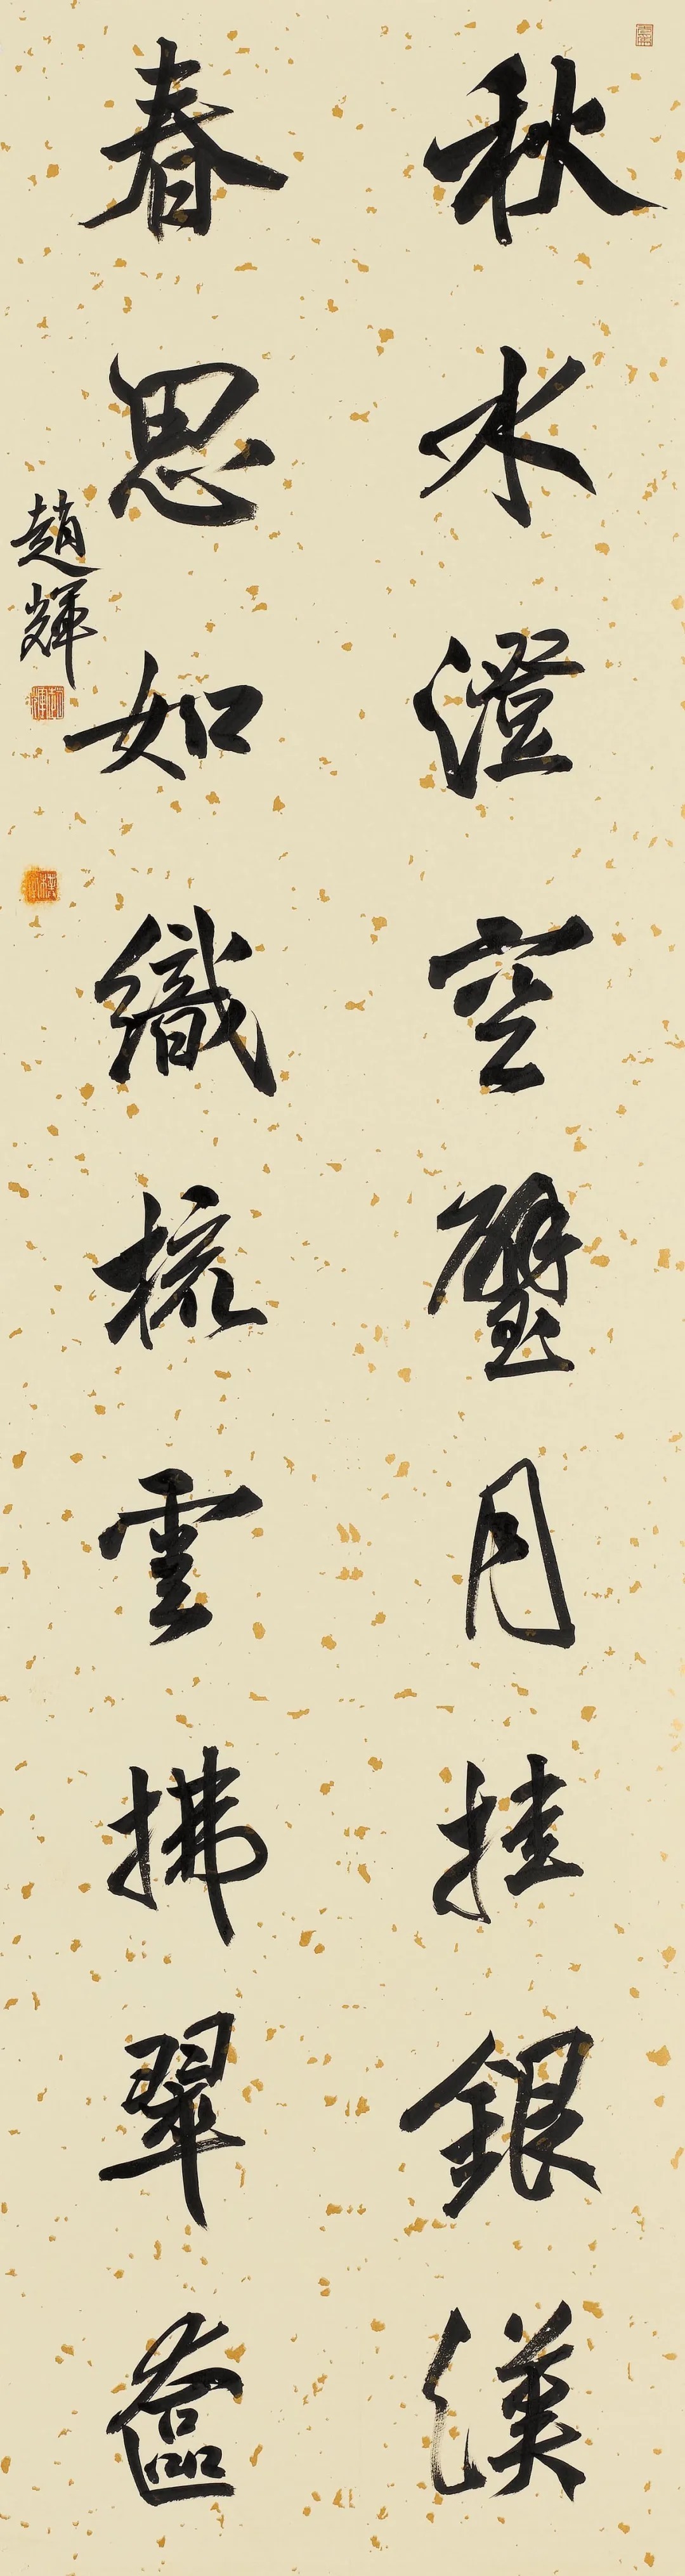 秋水澄空璧月挂銀漢
春思如織梳雲拂翠奩
趙輝